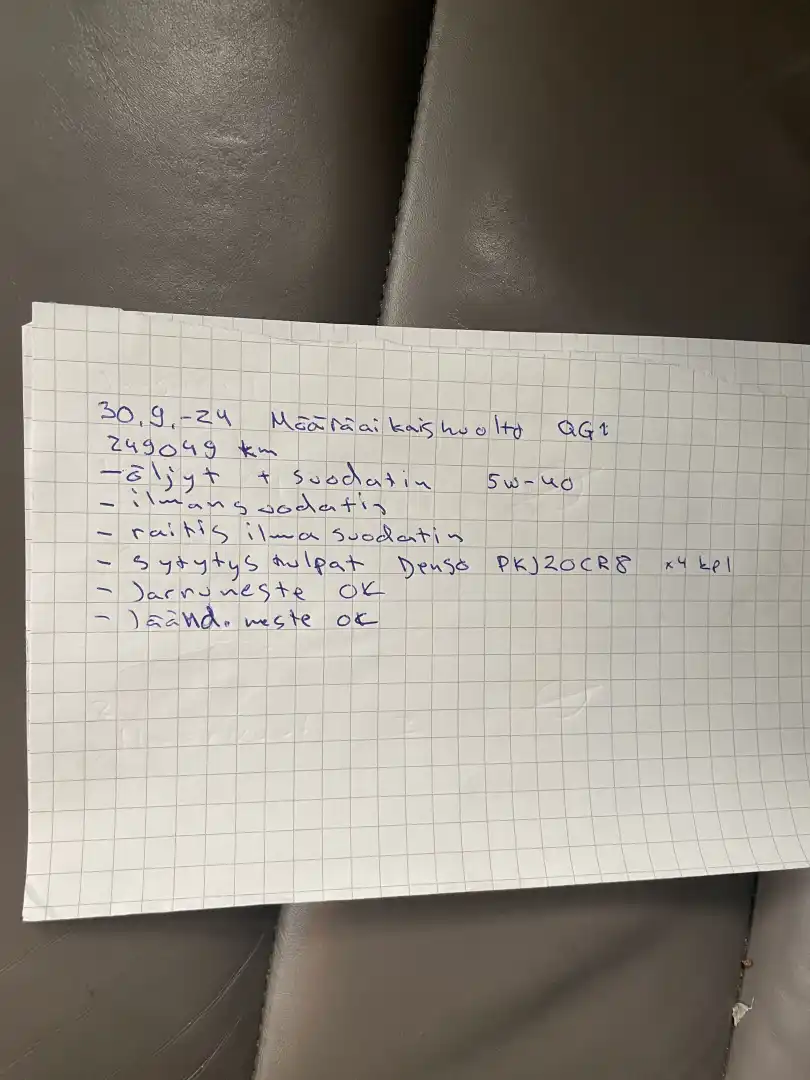 30.9.-24 Määräaikaishuolto QG1
249049 km
- öljyt + suodatin 5w-40
- ilmansuodatin
- raitis ilma suodatin
- sytytys tulpat Denso PKJ20CR8 x4 kpl
- Jarruneste OK
- Jäähd. neste OK